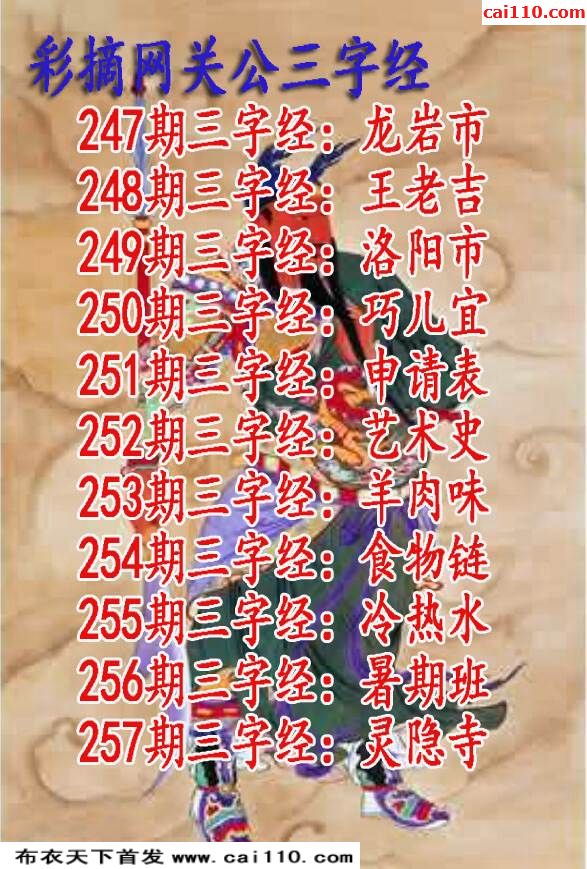 cai110.com
彩摘网关公三字经
247期三字经：龙岩市
248期三字经：王老吉
249期三字经：洛阳市
250期三字经：巧儿宜
251期三字经：申请表
252期三字经：艺术史
253期三字经：羊肉味
254期三字经：食物链
255期三字经：冷热水
256期三字经：暑期班
257期三字经：灵隐寺
布衣天下首发 www.cai110.com